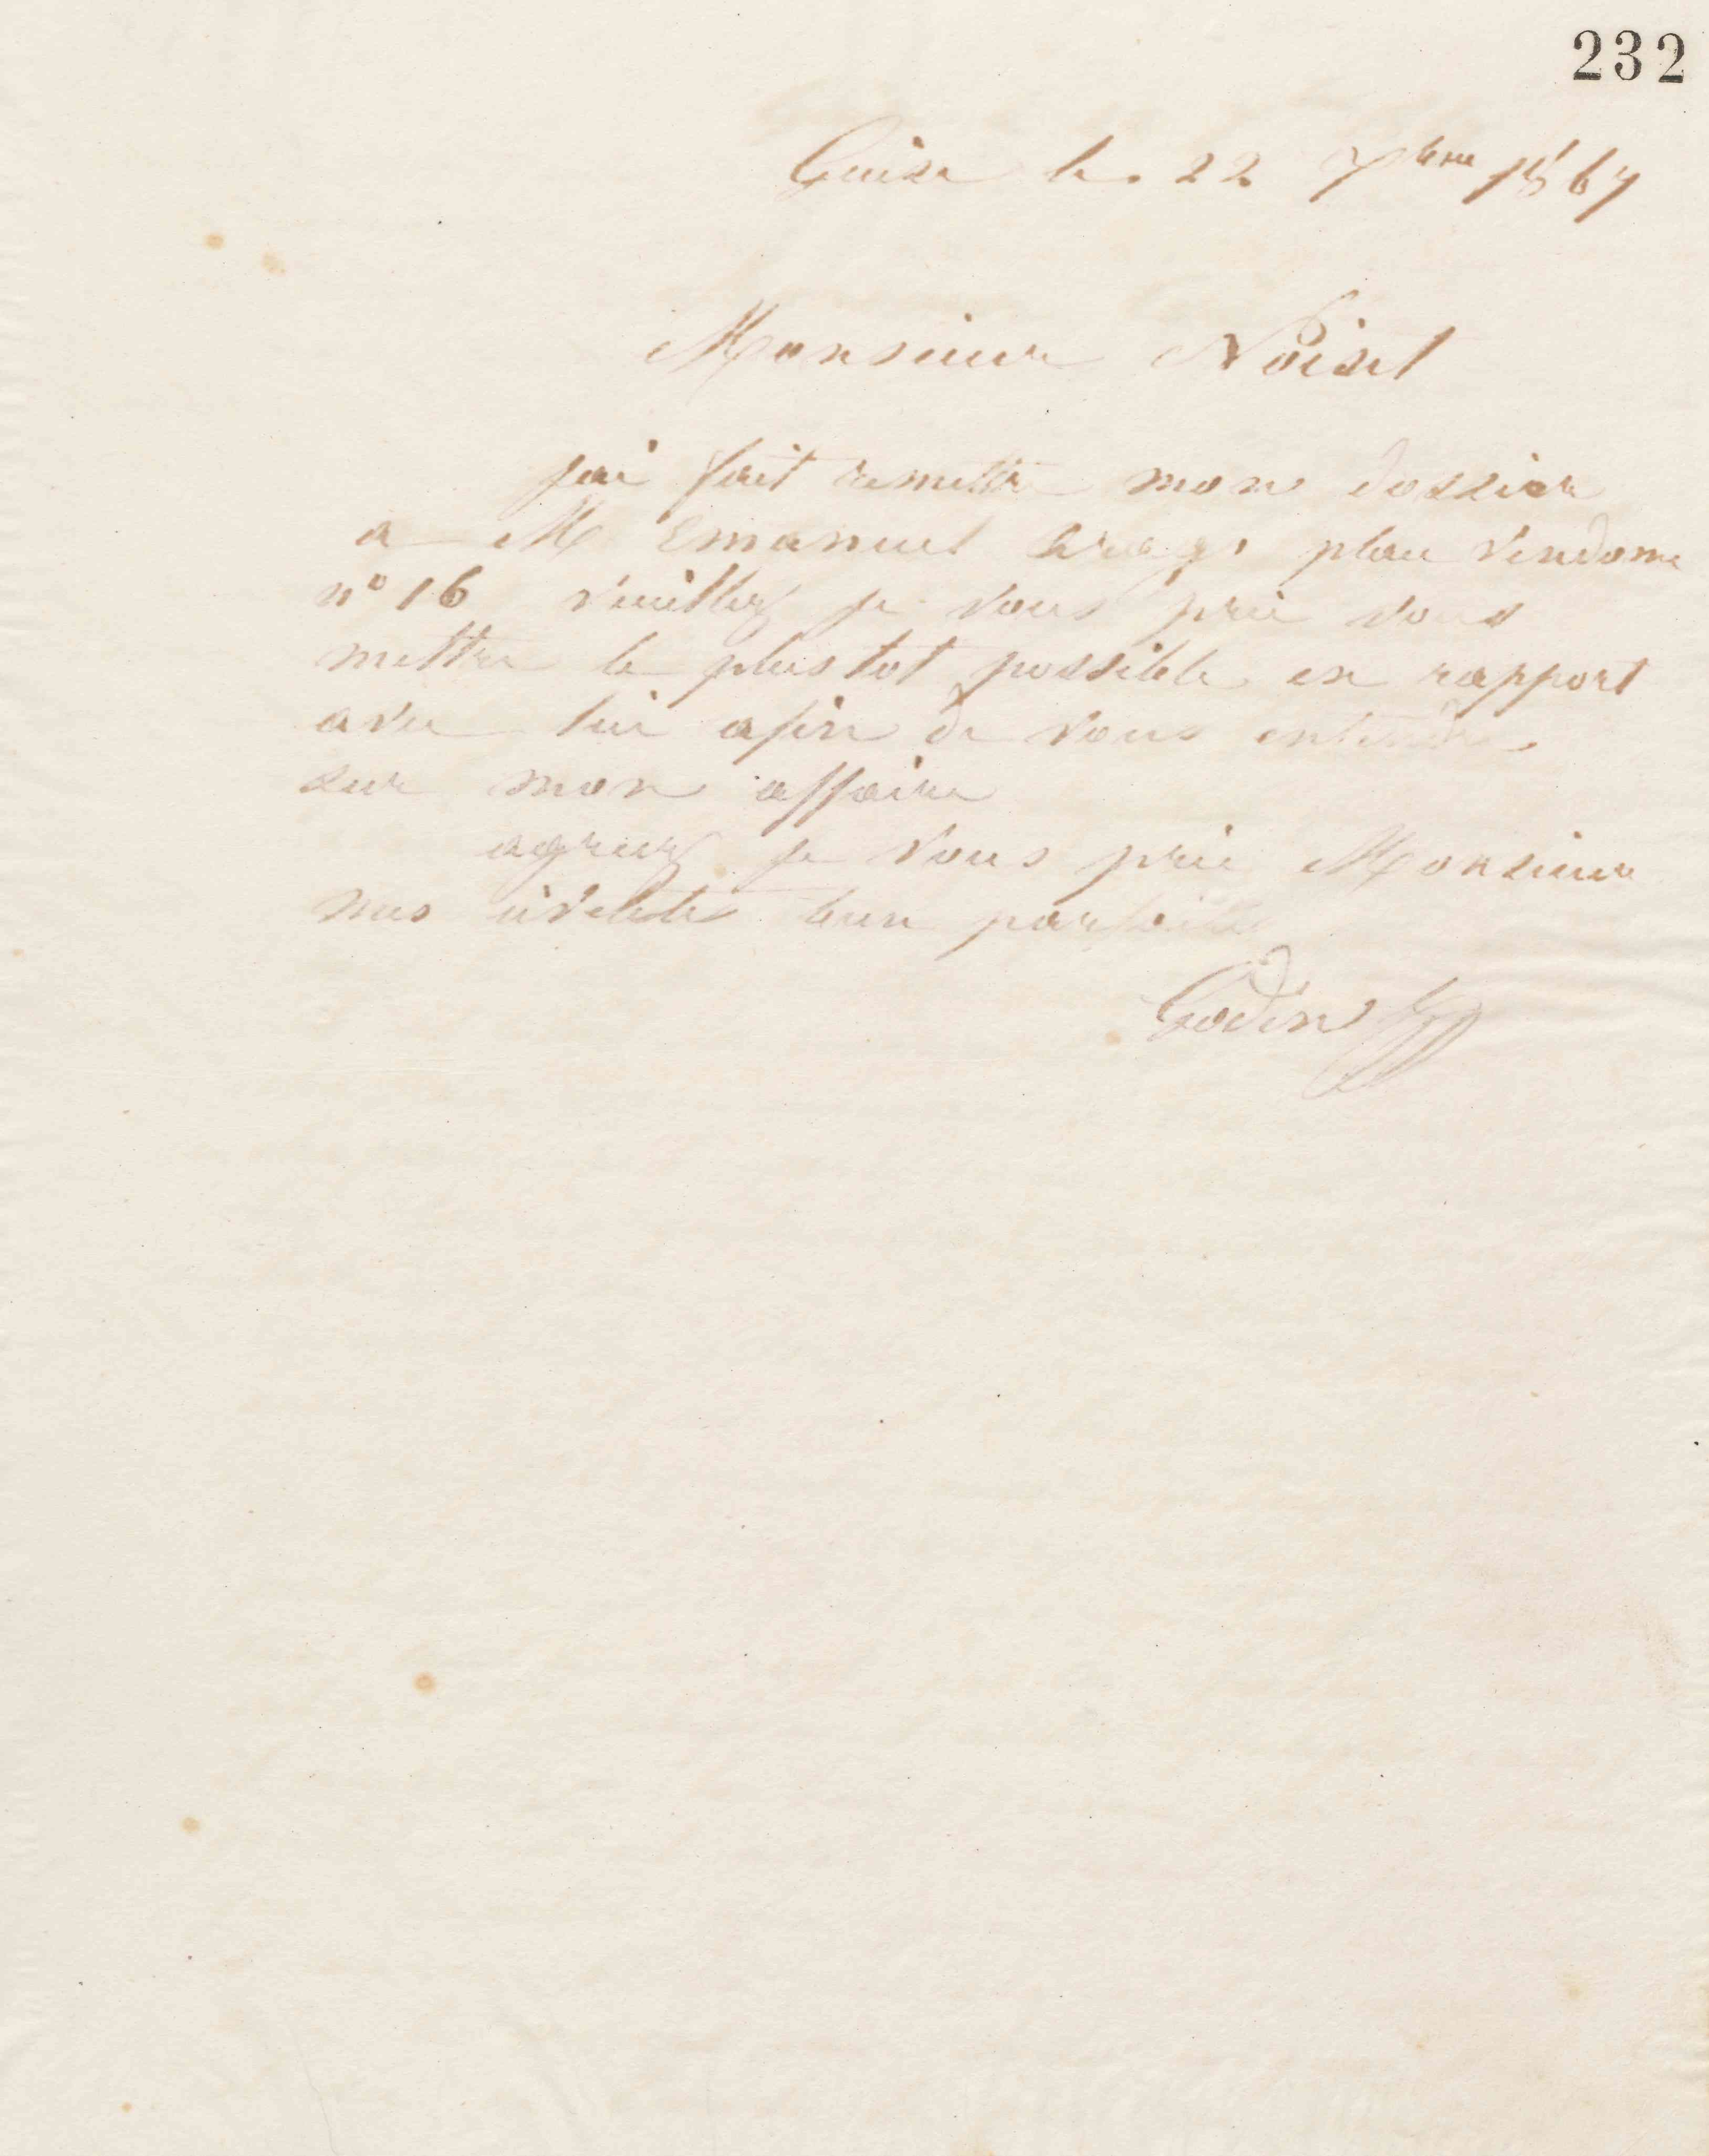 232
Guise le 22 7bre 1867
Monsieur Noiset
jai fait remettre mon dossier
a M Emanuel Arago place Vendome
n° 16 veuillez je vous prie vous
mettre le plus tot possible en rapport
avec lui afin de vous entendre
sur mon affaire
agreez je vous prie Monsieur
mes civilités bien parfaites
Godin